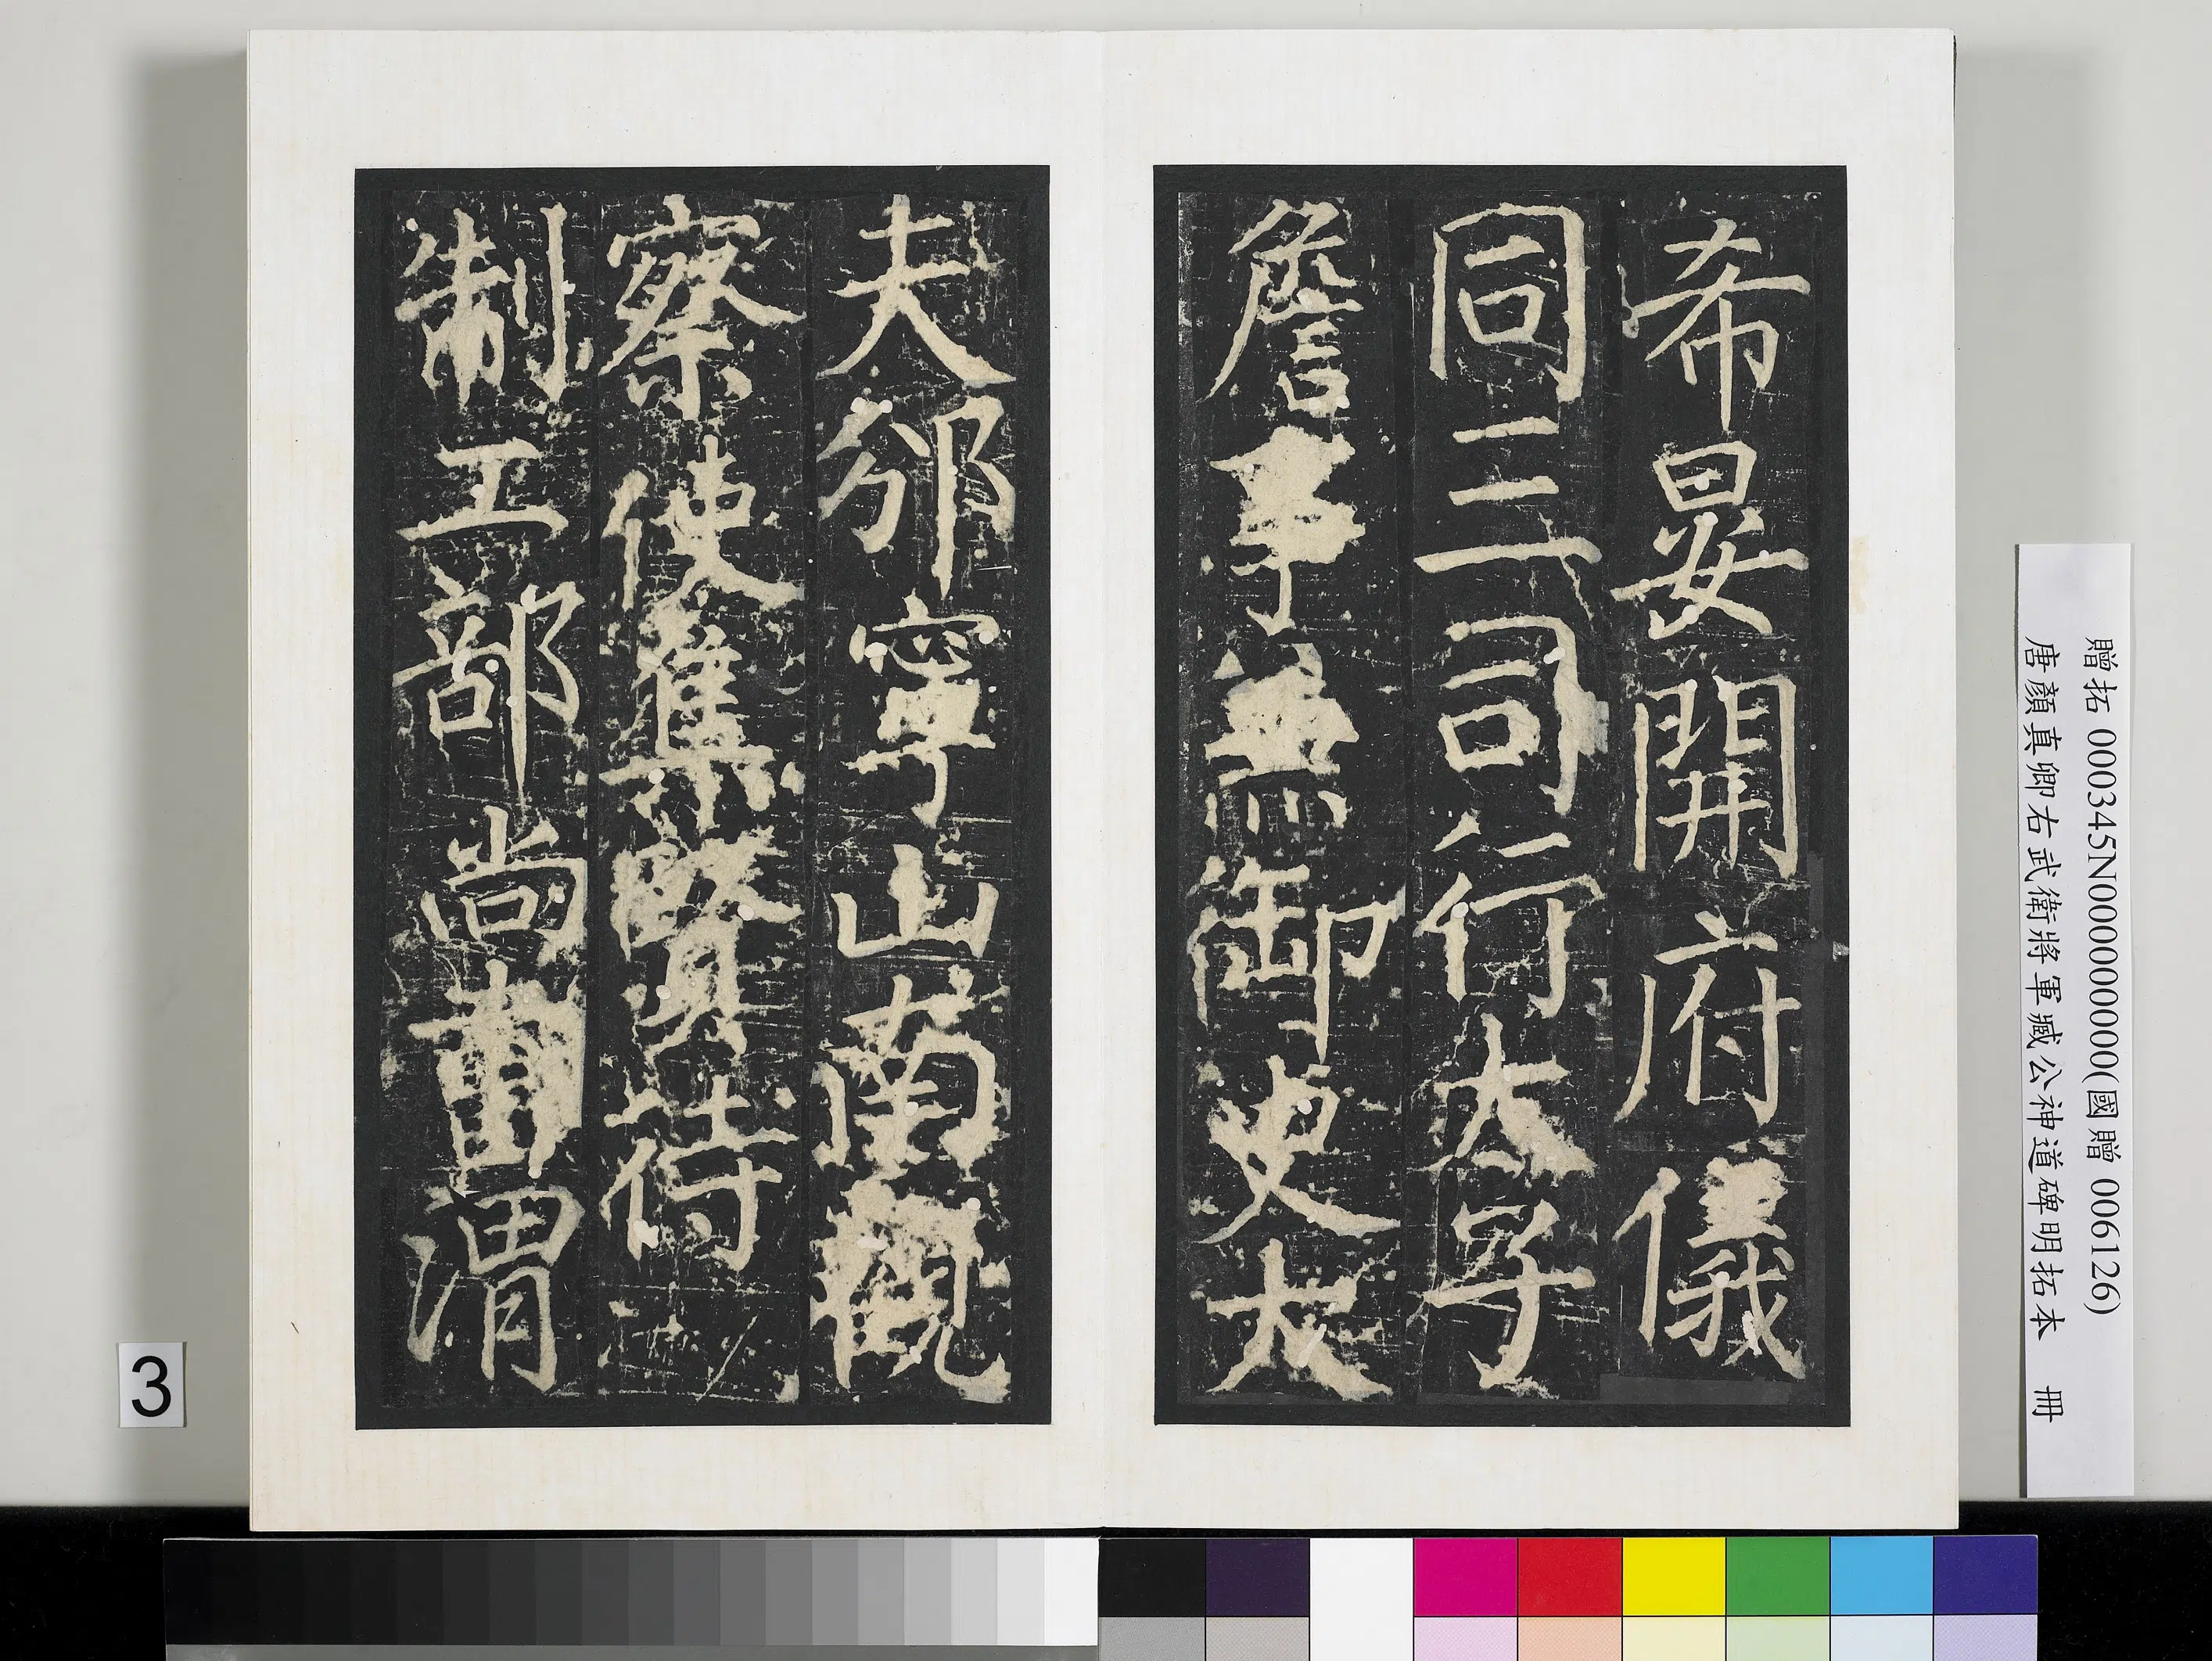 希晏開府儀
同三司行太子
詹事兼御史大
夫邠寧山南觀
察使集賢待
制工部尚書渭
贈拓 000345N000000000(國贈 006126)
唐顏真卿右武衛將軍臧公神道碑明拓本 冊
3